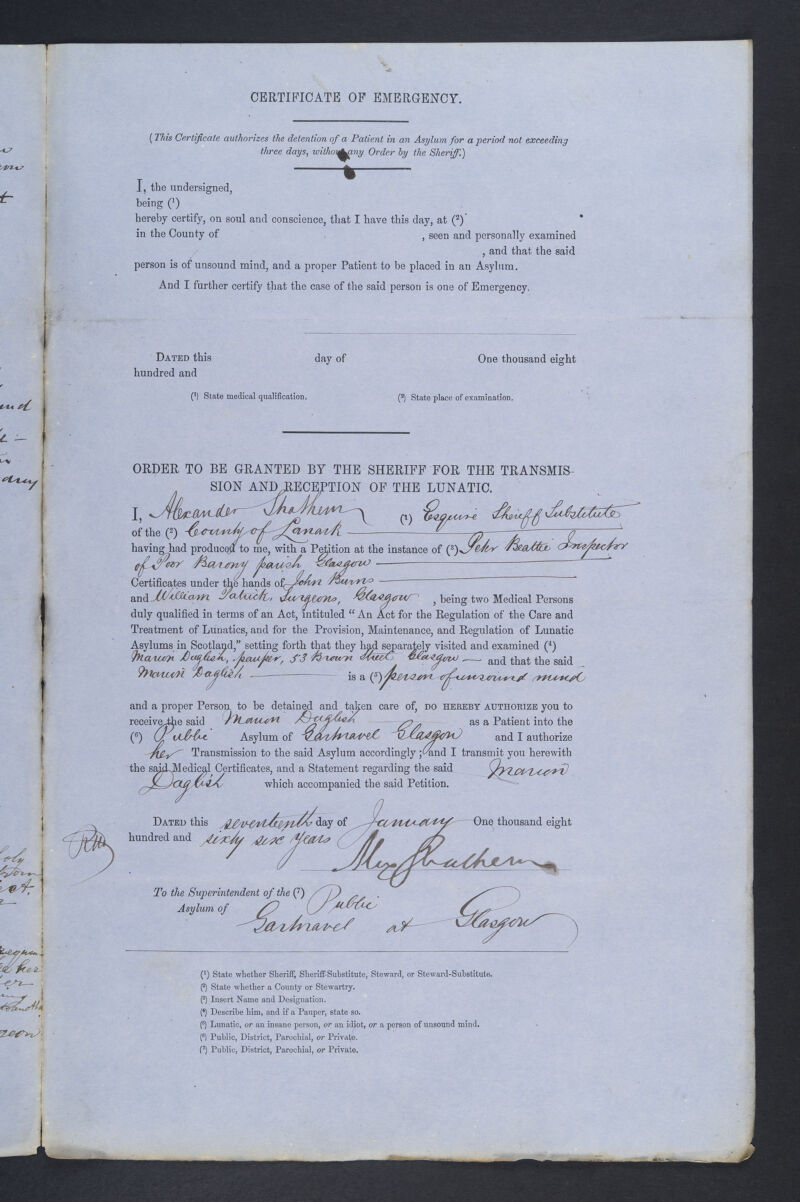 CERTIFICATE OF EMERGENCY.
(This Certificate authorizes the detention of a Patient in an Asylum for a period not exceeding
three days, without any Order by the Sheriff.)
I, the undersigned,
being (1)
hereby certify, on soul and conscience, that I have this day, at (2)
in the County of , seen and personally examined
, and that the said
person is of unsound mind, and a proper Patient to be placed in an Asylum.
And I further certify that the case of the said person is one of Emergency.
DATED this day of One thousand eight
hundred and
(1) State medical qualification. (2) State place of examination.
ORDER TO BE GRANTED BY THE SHERIFF FOR THE TRANSMIS-
SION AND RECEPTION OF THE LUNATIC.
I, Alexander Strathern (1) Esquire Sheriff Substitute
of the (2) County of Lanark
having had produced to me, with a Petition at the instance of (3) Peter Beattie Inspector
of Poor Barony parish Glasgow
Certificates under the hands of John Burns
and William Patrick, Surgeons, Glasgow , being two Medical Persons
duly qualified in terms of an Act, intituled "An Act for the Regulation of the Care and
Treatment of Lunatics, and for the Provision, Maintenance, and Regulation of Lunatic
Asylums in Scotland," setting forth that they had separately visited and examined (4)
Marion Daglish, pauper, 53 Brown Street Glasgow and that the said
Marion Daglish is a (5) person of unsound mind
and a proper Person to be detained and taken care of, DO HEREBY AUTHORIZE you to
receive the said Marion Daglish as a Patient into the
(6) Public Asylum of Gartnavel Glasgow and I authorize
her Transmission to the said Asylum accordingly; and I transmit you herewith
the said Medical Certificates, and a Statement regarding the said Marion
Daglish which accompanied the said Petition.
DATED this seventeenth day of January One thousand eight
hundred and sixty six years
Alex Strathern
To the Superintendent of the (7) Public
Asylum of
Gartnavel at Glasgow
(1) State whether Sheriff, Sheriff-Substitute, Steward, or Steward-Substitute.
(2) State whether a County or Stewartry.
(3) Insert Name and Designation.
(4) Describe him, and if a Pauper, state so.
(5) Lunatic, or an insane person, or an idiot, or a person of unsound mind.
(6) Public, District, Parochial, or Private.
(7) Public, District, Parochial, or Private.